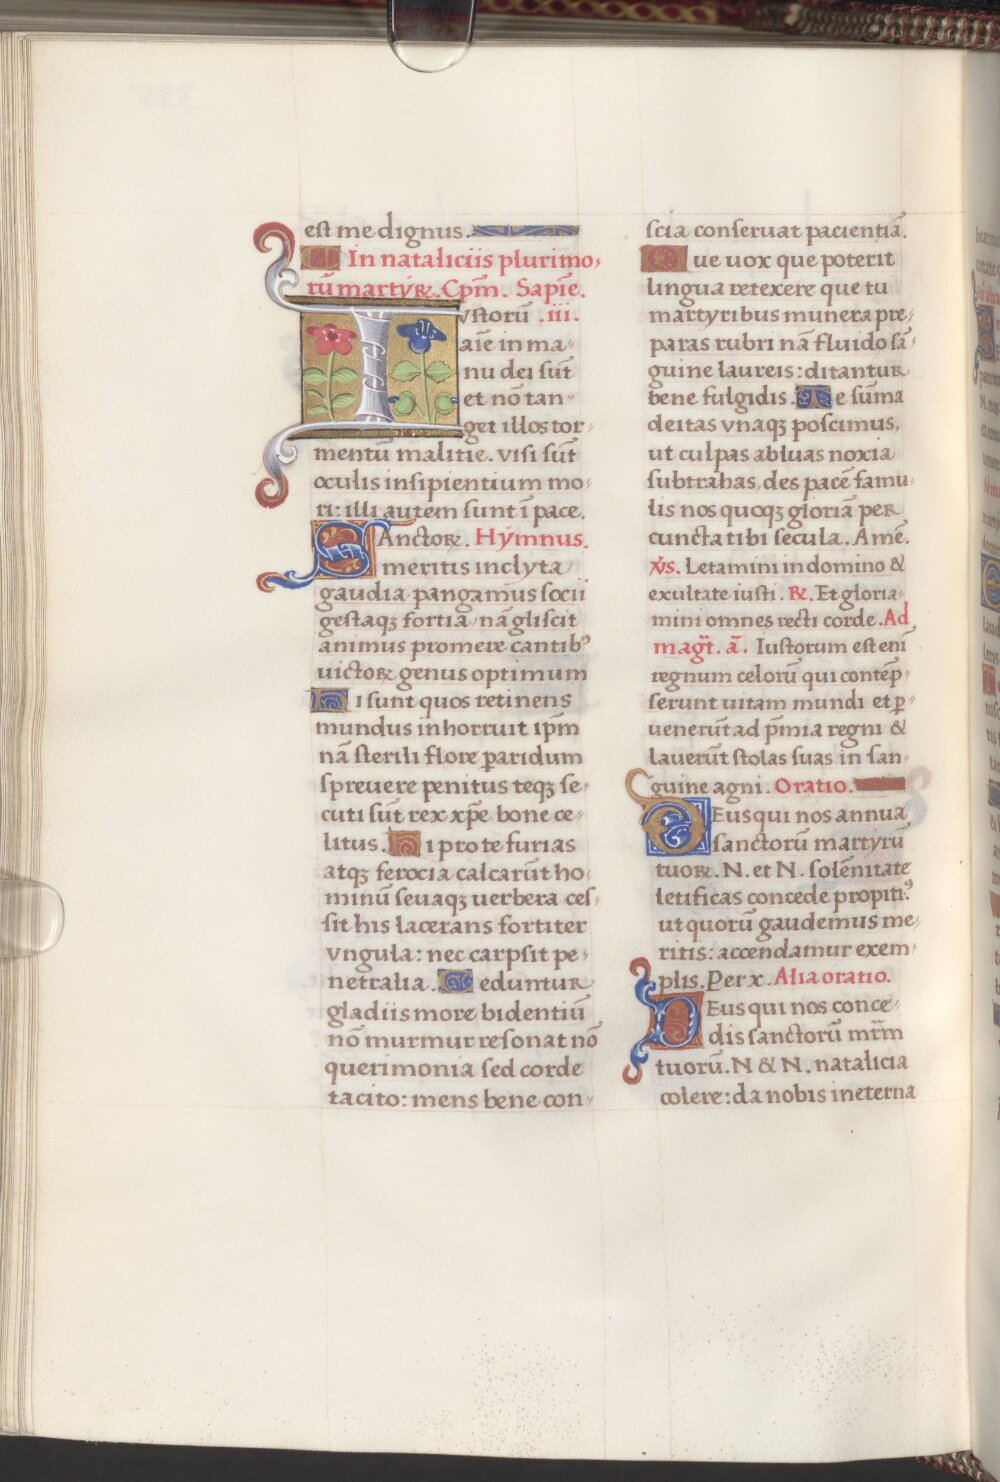 est me dignus.
In nataliciis plurimo-
rū martyꝝ. Cpm̄. Sapīe.
Iustorū .iii.
aīe in ma-
nu dei sūt
et nō tan-
get illos tor-
mentū malitie. visi sūt
oculis insipientium mo-
ri: illi autem sunt ī pace.
SAnctoꝝ. Hẏmnus.
meritis inclyta
gaudia pangamus socii
gestaqꝫ fortia nā gliscit
animus promere cantibꝰ
uictoꝝ genus optimum
Hi sunt quos retinens
mundus inhorruit ipm̄
nā sterili flore ꝑaridum
spreuere penitus teqꝫ se-
cuti sūt rex xp̄e bone ce-
litus. Hi pro te furias
atqꝫ ferocia calcarūt ho-
minū seuaqꝫ uerbera ces-
sit his lacerans fortiter
vngula: nec carpsit pe-
netralia. Ceduntur
gladiis more bidentiū
nō murmur resonat nō
querimonia sed corde
tacito: mens bene con-
scia conseruat pacientiā.
Que uox que poterit
lingua retexere que tu
martyribus munera pre-
paras rubri nā fluido sā-
guine laureis: ditantur
bene fulgidis. Te sūma
deitas vnaqꝫ poscimus,
ut culpas abluas noxia
subtrahas, des pacē famu-
lis nos quoqꝫ gloriā per
cuncta tibi secula. Amē.
v̇s. Letamini in domino &
exultate iusti. ℞. Et gloria-
mini omnes recti corde. Ad
magt̄. ā. Iustorum est enī
regnum celorū qui contēp-
serunt uitam mundi et ꝑ-
uenerūt ad p̄mia regni &
lauerūt stolas suas in san-
guine agni. Oratio.
DEus qui nos annua
sanctorū martyrū
tuoꝝ. N. et N. solēnitate
letificas concede propitiꝰ.
ut quorū gaudemus me-
ritis: accendamur exem-
plis. Per x. Alia oratio.
DEus qui nos conce-
dis sanctorū mr̄m
tuorū. N & N. natalicia
colere: da nobis in eterna